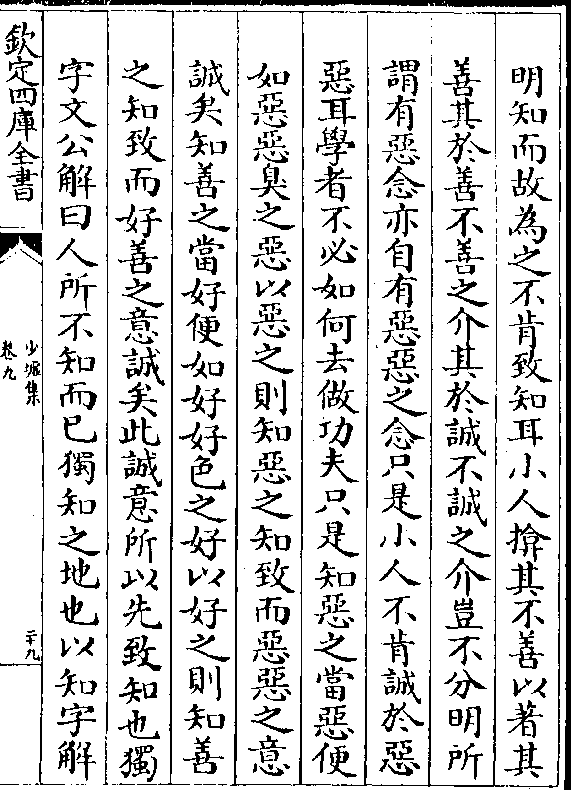 明知而故為之不肯致知耳小人揜其不善以著其
善其於善不善之介其於誠不誠之介豈不分明所
謂有惡念亦自有惡惡之念只是小人不肯誠於惡
惡耳學者不必如何去做功夫只是知惡之當惡便
如惡惡臭之惡以惡之則知惡之知致而惡惡之意
誠矣知善之當好便如好好色之好以好之則知善
之知致而好善之意誠矣此誠意所以先致知也獨
字文公解曰人所不知而已獨知之地也以知字解
欽定四庫全書
少墟集
卷九
二十九